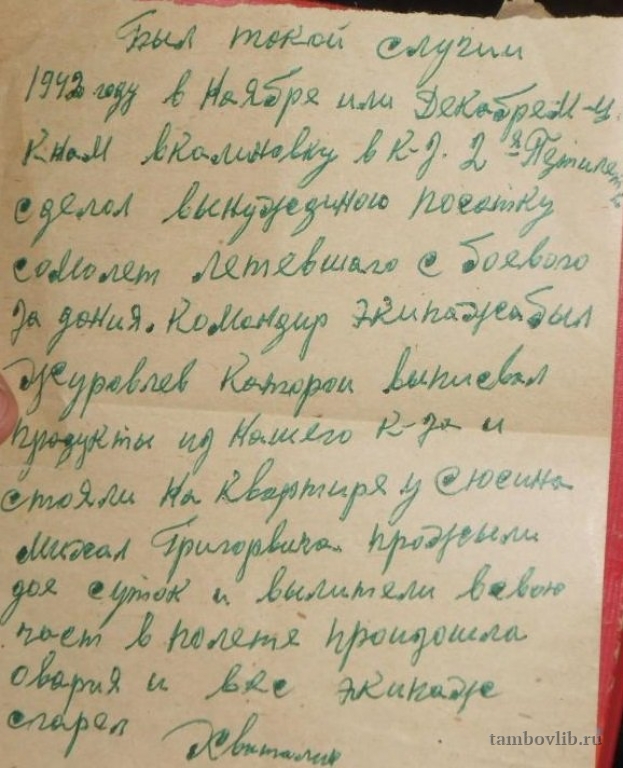 Был токой случии
1942 году в Ноябре или Декабре м-ц.
К нам в Колиновку в к-з. 2я Пятилетк
сделол вынуждиною посотку
сомолет летевшаго с боевого
зодония. Комондир экипажа был
Журовлев каторои выписвол
продукты из нашего к-за и
стояли на квартиря у Сюсина
михал Григорвича. прожыли
двое суток и вылители в свою
част в полете произошла
овария и вес экипаж
сгарел Хваталин
tambovlib.ru